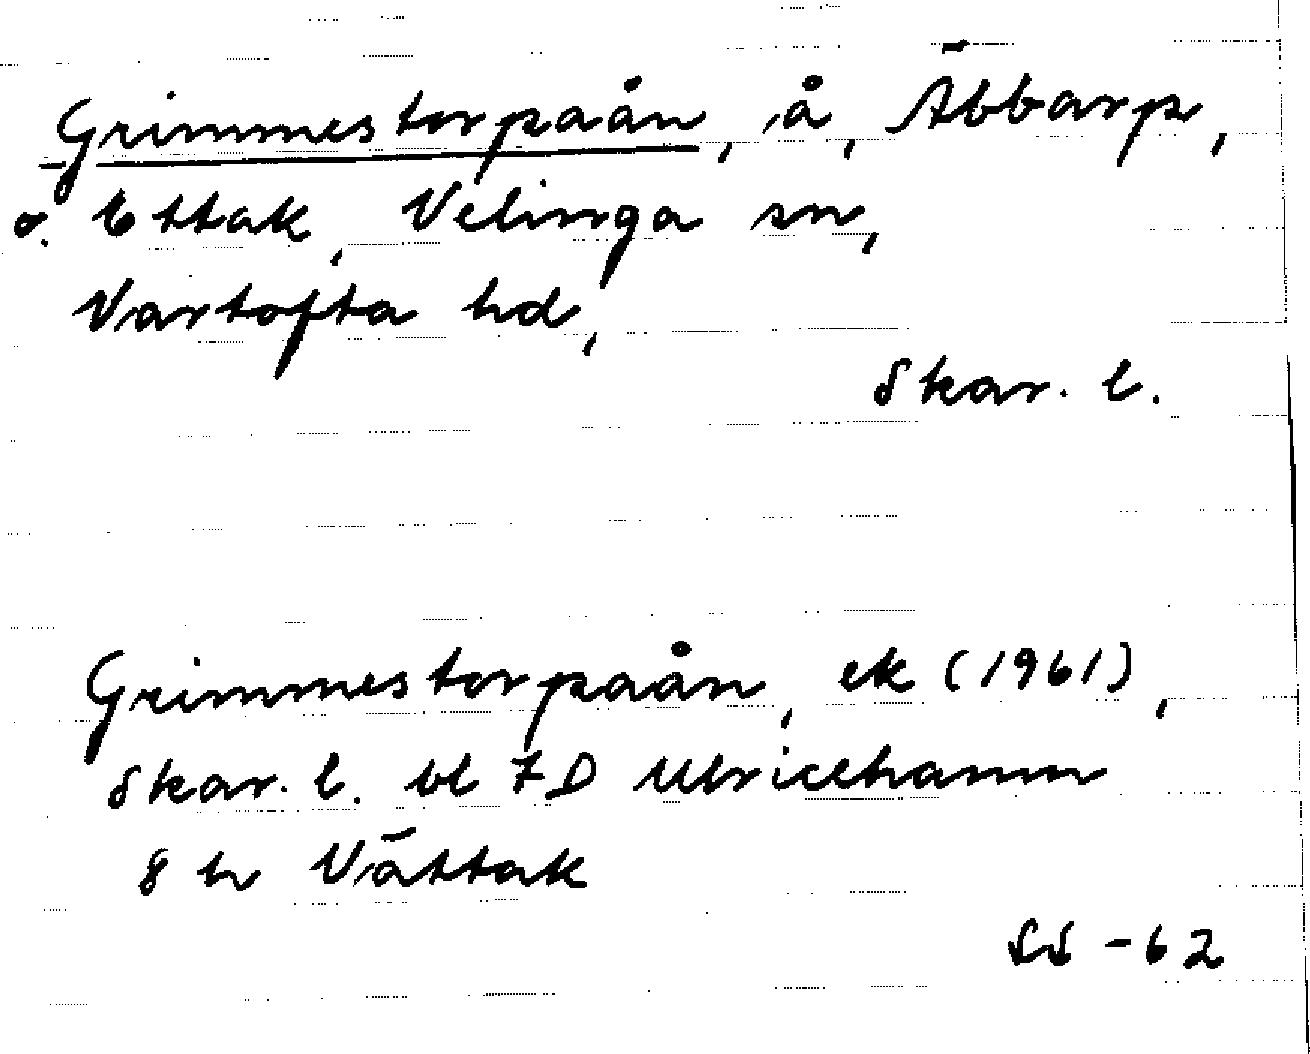 Grimmestorpaån, å, Äbbarp,
o. Ettak, Velinga sn,
Vartofta hd,
Skar. l.
Grimmestorpaån, ek (1961),
Skar. l. bl 7D Ulricehamn
8 h Vättak
SS -62